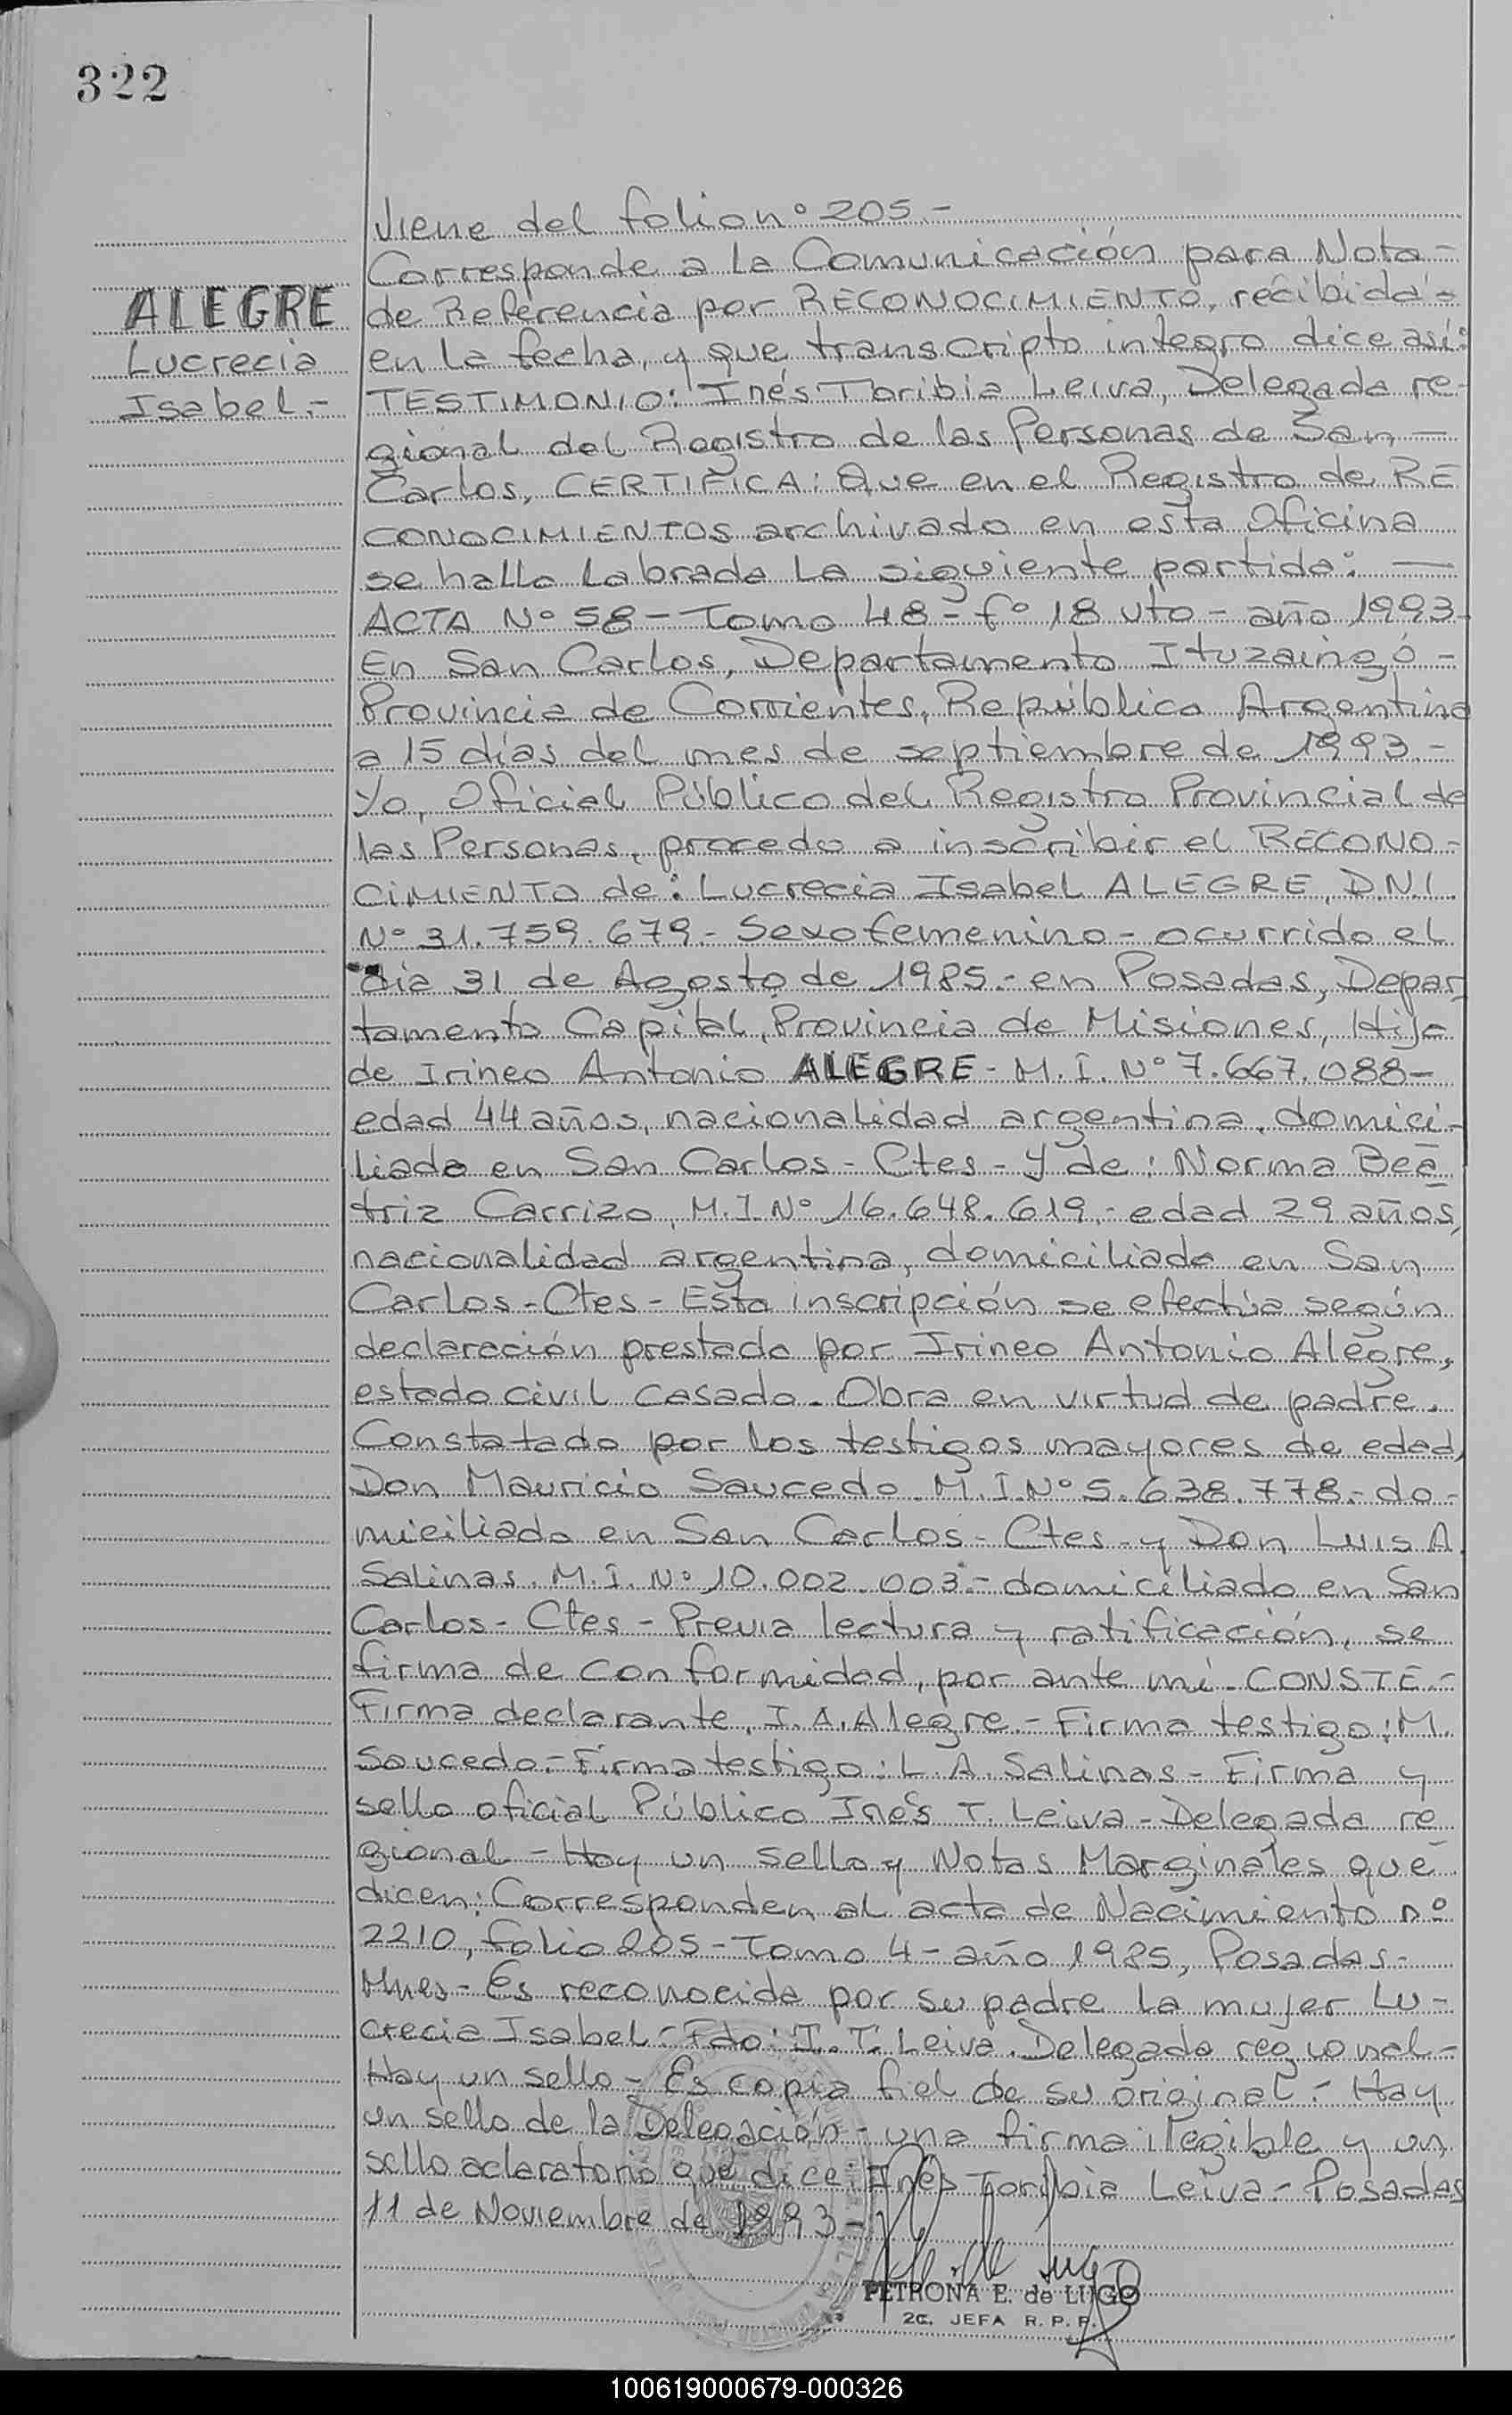 322
ALEGRE
Lucrecia
Isabel.-
Viene del folio nº 205.-
Corresponde a la Comunicación para Nota-
de Referencia por RECONOCIMIENTO, recibida-
en la fecha, y que transcripto integro dice así:
TESTIMONIO: Inés Toribia Leiva, Delegada re-
gional del Registro de las Personas de San-
Carlos, CERTIFICA: Que en el Registro de RE
CONOCIMIENTOS archivado en esta Oficina
se halla labrada la siguiente partida: —
ACTA Nº 58 - Tomo 48 - fº 18 vto - año 1993-
En San Carlos, Departamento Ituzaingó-
Provincia de Corrientes, República Argentina
a 15 días del mes de septiembre de 1993.-
Yo, Oficial Público del Registro Provincial de
las Personas, procedo a inscribir el RECONO-
CIMIENTO de: Lucrecia Isabel ALEGRE, D.N.I.
Nº 31.759.679.- Sexo femenino - ocurrido el
día 31 de Agosto de 1985.- en Posadas, Depar-
tamento Capital, Provincia de Misiones, Hija
de Irineo Antonio ALEGRE - M.I. Nº 7.667.088-
edad 44 años, nacionalidad argentina, domici-
liado en San Carlos - Ctes - y de: Norma Bea
triz Carrizo, M.I Nº 16.648.619.- edad 29 años,
nacionalidad argentina, domiciliada en San
Carlos - Ctes - Esta inscripción se efectúa según
declaración prestada por Irineo Antonio Alegre,
estado civil casado. Obra en virtud de padre.
Constatado por los testigos mayores de edad,
Don Mauricio Saucedo M.I.Nº 5.638.778.- do-
miciliado en San Carlos - Ctes - y Don Luis A.
Salinas. M.I. Nº 10.002.003.- domiciliado en San
Carlos - Ctes - Previa lectura y ratificación, se
firma de conformidad, por ante mi. CONSTE.-
Firma declarante, I. A. Alegre.- Firma testigo: M.
Saucedo.- Firma testigo: L. A. Salinas - Firma y
sello oficial Público Inés T. Leiva - Delegada re
gional - Hay un sello y Notas Marginales que
dicen: Corresponden al acta de Nacimiento nº
2210, folio 205 - Tomo 4 - año 1985, Posadas-
Mnes - Es reconocida por su padre la mujer Lu-
crecia Isabel - Fdo: I. T. Leiva. Delegada regional -
Hay un sello - Es copia fiel de su original.- Hay
un sello de la Delegación - una firma ilegible y un
sello aclaratorio que dice: Inés Toribia Leiva - Posadas
11 de Noviembre de 1993.-
PETRONA E. de LUGO
2a. JEFA R. P. P.
100619000679-000326